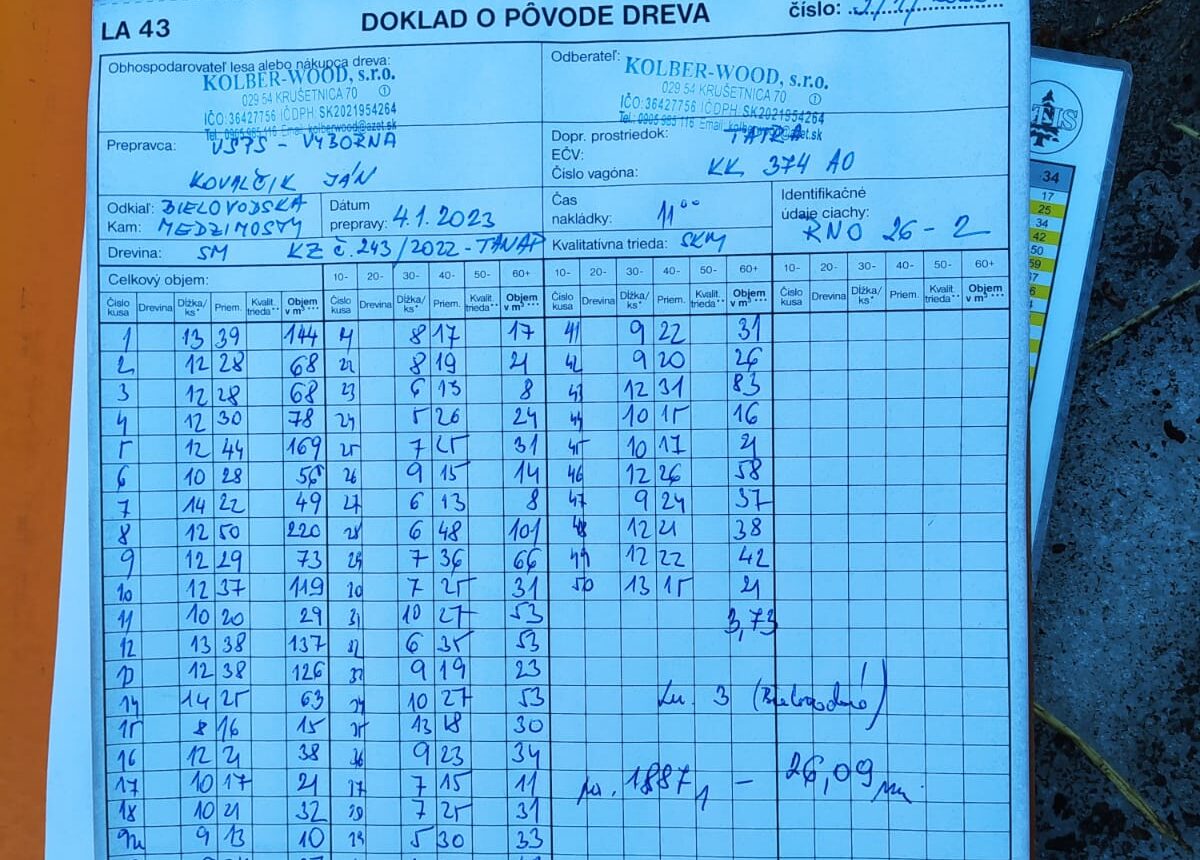 LA 43 DOKLAD O PÔVODE DREVA číslo:
Obhospodarovateľ lesa alebo nákupca dreva: Odberateľ:
KOLBER-WOOD, s.r.o. KOLBER-WOOD, s.r.o.
029 54 KRUŠETNICA 70 029 54 KRUŠETNICA 70
IČO:36427756 IČDPH: SK2021954264 IČO:36427756 IČDPH: SK2021954264
Tel.: 0905 965 116 Email: kolberwood@azet.sk Tel.: 0905 965 116 Email:
Prepravca: VŠPS - VÝBORNÁ Dopr. prostriedok: TATRA
KOVALČIK JÁN EČV:
Číslo vagóna: KK 374 AO
Odkiaľ: BIELOVODSKÁ Dátum Čas Identifikačné
Kam: MEDZIMOSTY prepravy: 4.1.2023 nakládky: 11⁰⁰ údaje ciachy: RNO 26 - 2
Drevina: SM KZ č. 243/2022 - TANAP Kvalitatívna trieda: SKM
Celkový objem: 10- 20- 30- 40- 50- 60+ 10- 20- 30- 40- 50- 60+ 10- 20- 30- 40- 50- 60+
Číslo kusa Drevina Dĺžka/ ks* Priem. Kvalit. trieda** Objem v m³*** Číslo kusa Drevina Dĺžka/ ks* Priem. Kvalit. trieda** Objem v m³*** Číslo kusa Drevina Dĺžka/ ks* Priem. Kvalit. trieda** Objem v m³*** Číslo kusa Drevina Dĺžka/ ks* Priem. Kvalit. trieda** Objem v m³***
1 13 39 144 21 8 17 17 41 9 22 31
2 12 28 68 22 8 19 21 42 9 20 26
3 12 28 68 23 6 13 8 43 12 31 83
4 12 30 78 24 5 26 24 44 10 15 16
5 12 44 169 25 7 25 31 45 10 17 21
6 10 28 56 26 9 15 14 46 12 26 58
7 14 22 49 27 6 13 8 47 9 24 37
8 12 50 220 28 6 48 101 48 12 21 38
9 12 29 73 29 7 36 66 49 12 22 42
10 12 37 119 30 7 25 31 50 13 15 21
11 10 20 29 31 10 27 53 3,73
12 13 38 137 32 6 35 53
13 12 38 126 33 9 19 23
14 14 25 63 34 10 27 53 3
15 8 16 15 35 13 18 30
16 12 21 38 36 9 23 34
17 10 17 21 37 7 15 11 1887 - 26,09
18 10 21 32 38 7 25 31
9 13 10 39 5 30 33
34
17
25
34
42
50
59